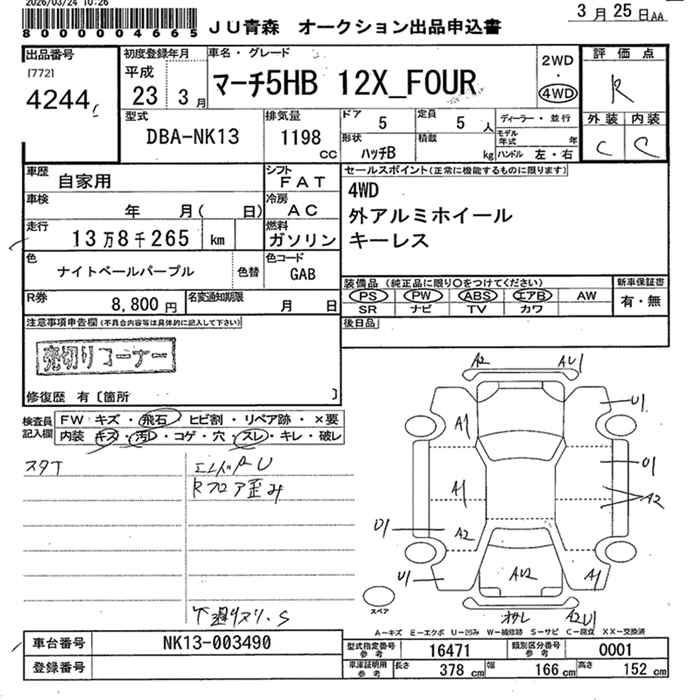 2026/03/24 10:26
8000004665
JU青森 オークション出品申込書
3月25日AA
出品番号
[772]
4244
初度登録年月
平成
23 3月
車名・グレード
マーチ5HB 12X_FOUR
2WD
・
4WD
評価点
R
外装 内装
C C
型式
DBA-NK13
排気量
1198
CC
ドア
5
定員
5人
形状
ハッチB
積載
kg
ディーラー・並行
モデル年式 年
ハンドル 左・右
車歴
自家用
シフト
FAT
車検
年 月( 日)
冷房
AC
走行
13万8千265 km
燃料
ガソリン
色
ナイトベールパープル
色替
色コード
GAB
R券
8,800円
名変通知期限
月 日
セールスポイント(正常に機能するものに限ります)
4WD
外アルミホイール
キーレス
装備品(純正品に限り○をつけてください)
PS PW ABS エアB AW
SR ナビ TV カワ
新車保証書
有・無
後日品
注意事項申告欄(不具合内容等は具体的に記入して下さい)
売切りコーナー
修復歴 有〔箇所 〕
検査員記入欄
FW キズ・飛石・ヒビ割・リペア跡・×要
内装 キズ・汚レ・コゲ・穴・スレ・キレ・破レ
スタT
Rフロア歪み
下廻りヌリ.S
A2
AU1
U1
A1
U1
A2
A1
A2
U1
U1
AU2
A1
オサレ
A2U1
スペア
A-キズ E-エクボ U-凹み W-補修跡 S-サビ C-腐食 XX-交換済
車台番号
NK13-003490
登録番号
型式指定番号参考
16471
類別区分番号参考
0001
車庫証明用参考
長さ 378cm 幅 166cm 高さ 152cm